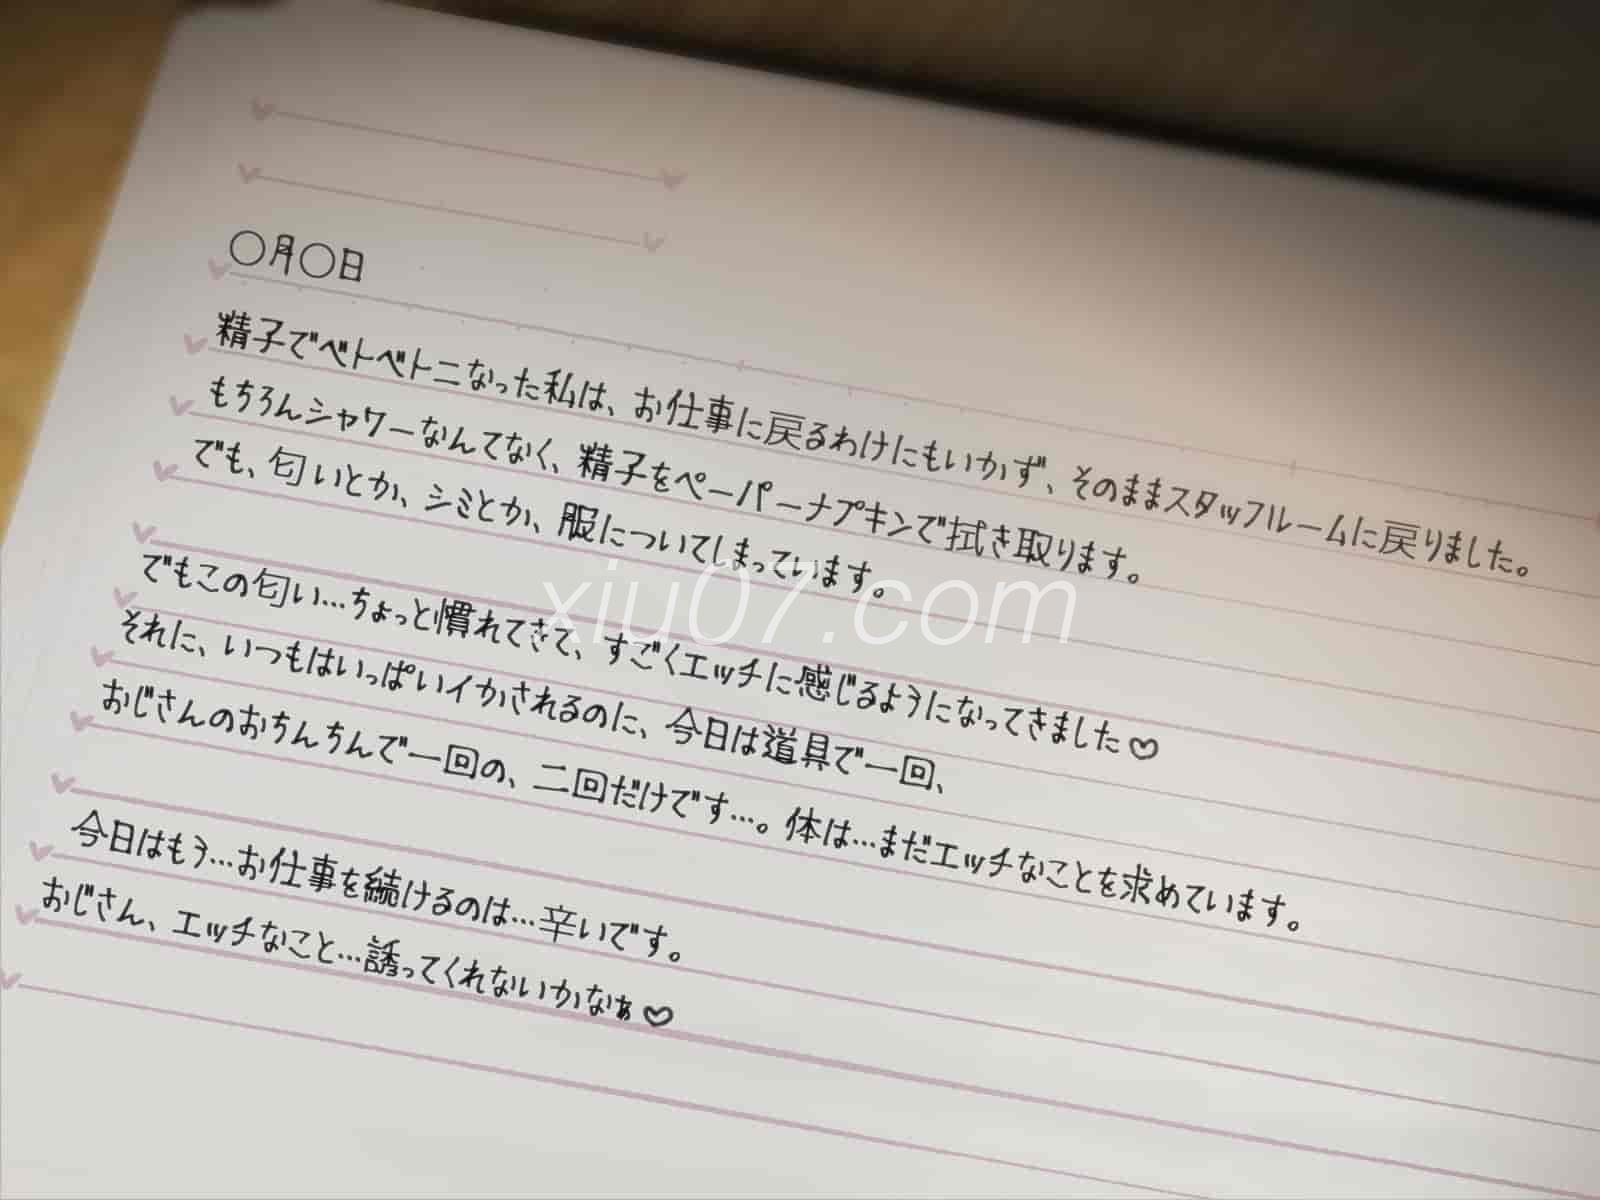 〇月〇日
精子でベトベトニなった私は、お仕事に戻るわけにもいかず、そのままスタッフルームに戻りました。
もちろんシャワーなんてなく、精子をペーパーナプキンで拭き取ります。
でも、匂いとか、シミとか、服についてしまっています。
でもこの匂い…ちょっと慣れてきて、すごくエッチに感じるようになってきました♡
それに、いつもはいっぱいイかされるのに、今日は道具で一回、
おじさんのおちんちんで一回の、二回だけです…。体は…まだエッチなことを求めています。
今日はもう…お仕事を続けるのは…辛いです。
おじさん、エッチなこと…誘ってくれないかなぁ♡
xiu07.com